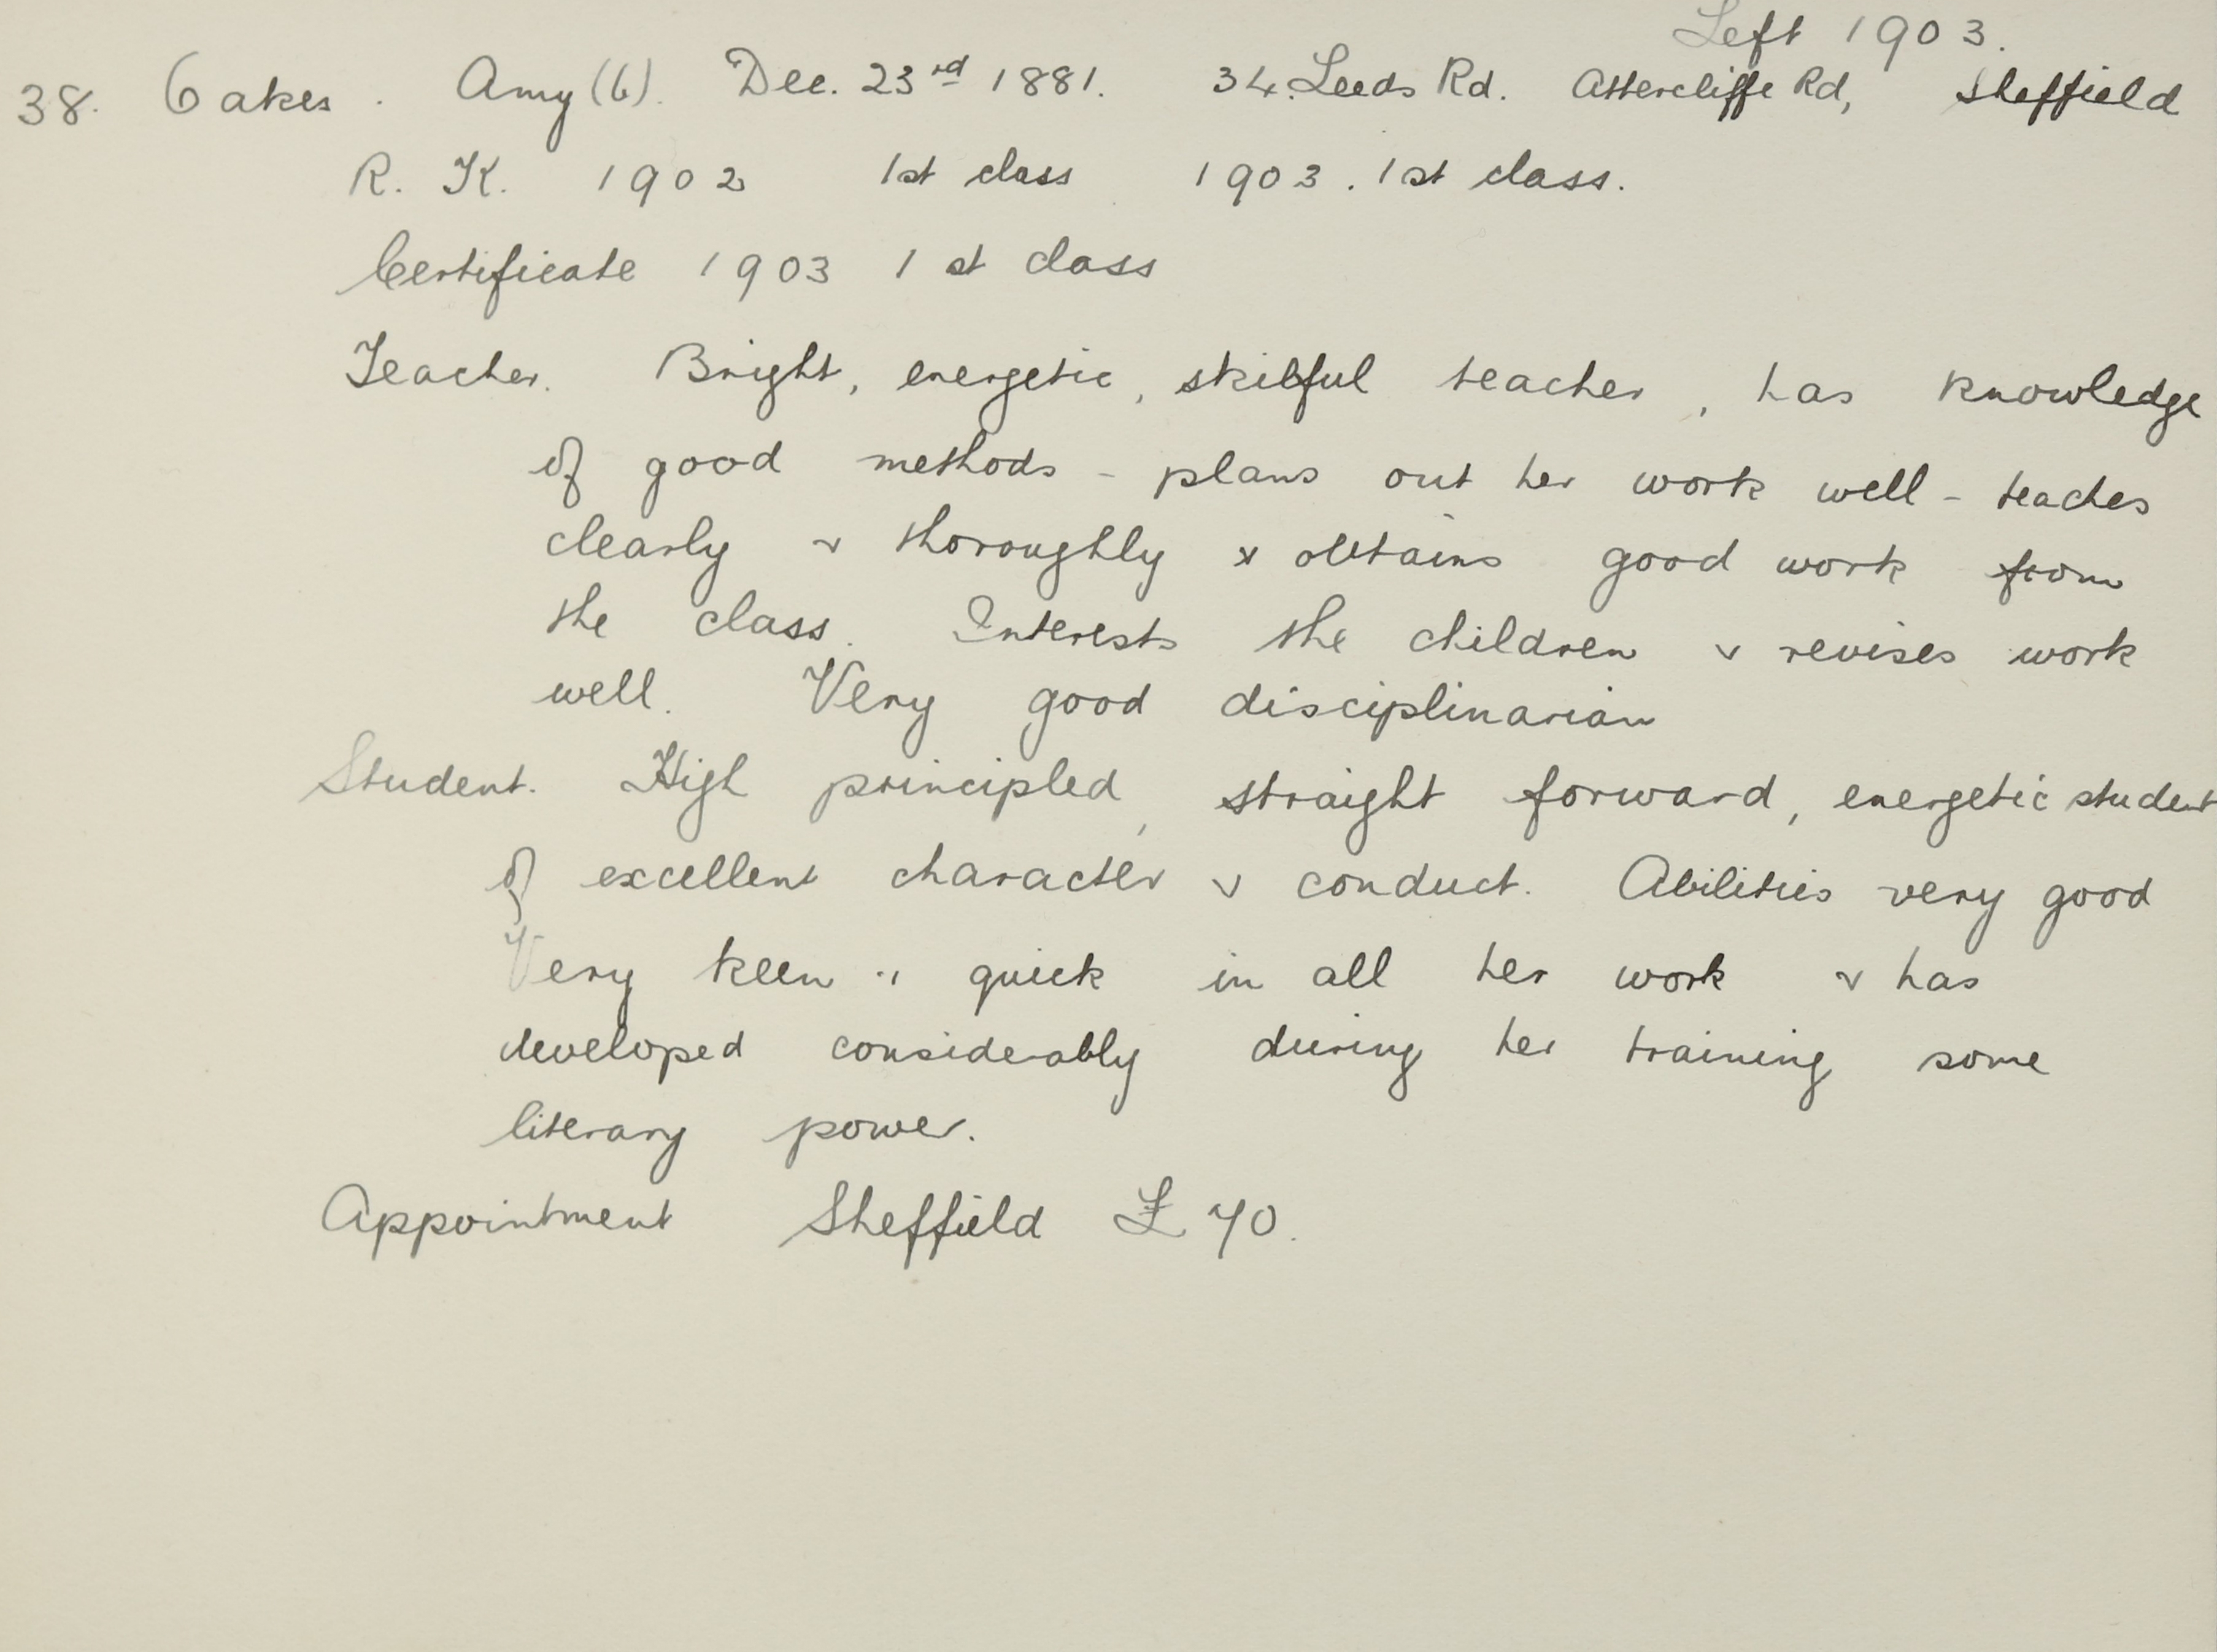 Left 1903.
38. Oakes. Amy (6). Dec. 23rd 1881. 34. Leeds Rd. Attercliffe Rd, Sheffield
R. K. 1902 1st class 1903. 1st class.
Certificate 1903 1st class
Teacher. Bright, energetic, skilful teacher, has knowledge
of good methods - plans out her work well - teaches
clearly & thoroughly & obtains good work from
the class. Interests the children & revises work
well. Very good disciplinarian
Student. High principled, straight forward, energetic student
of excellent character & conduct. Abilities very good
Very keen & quick in all her work & has
developed considerably during her training some
literary power.
Appointment Sheffield £70.